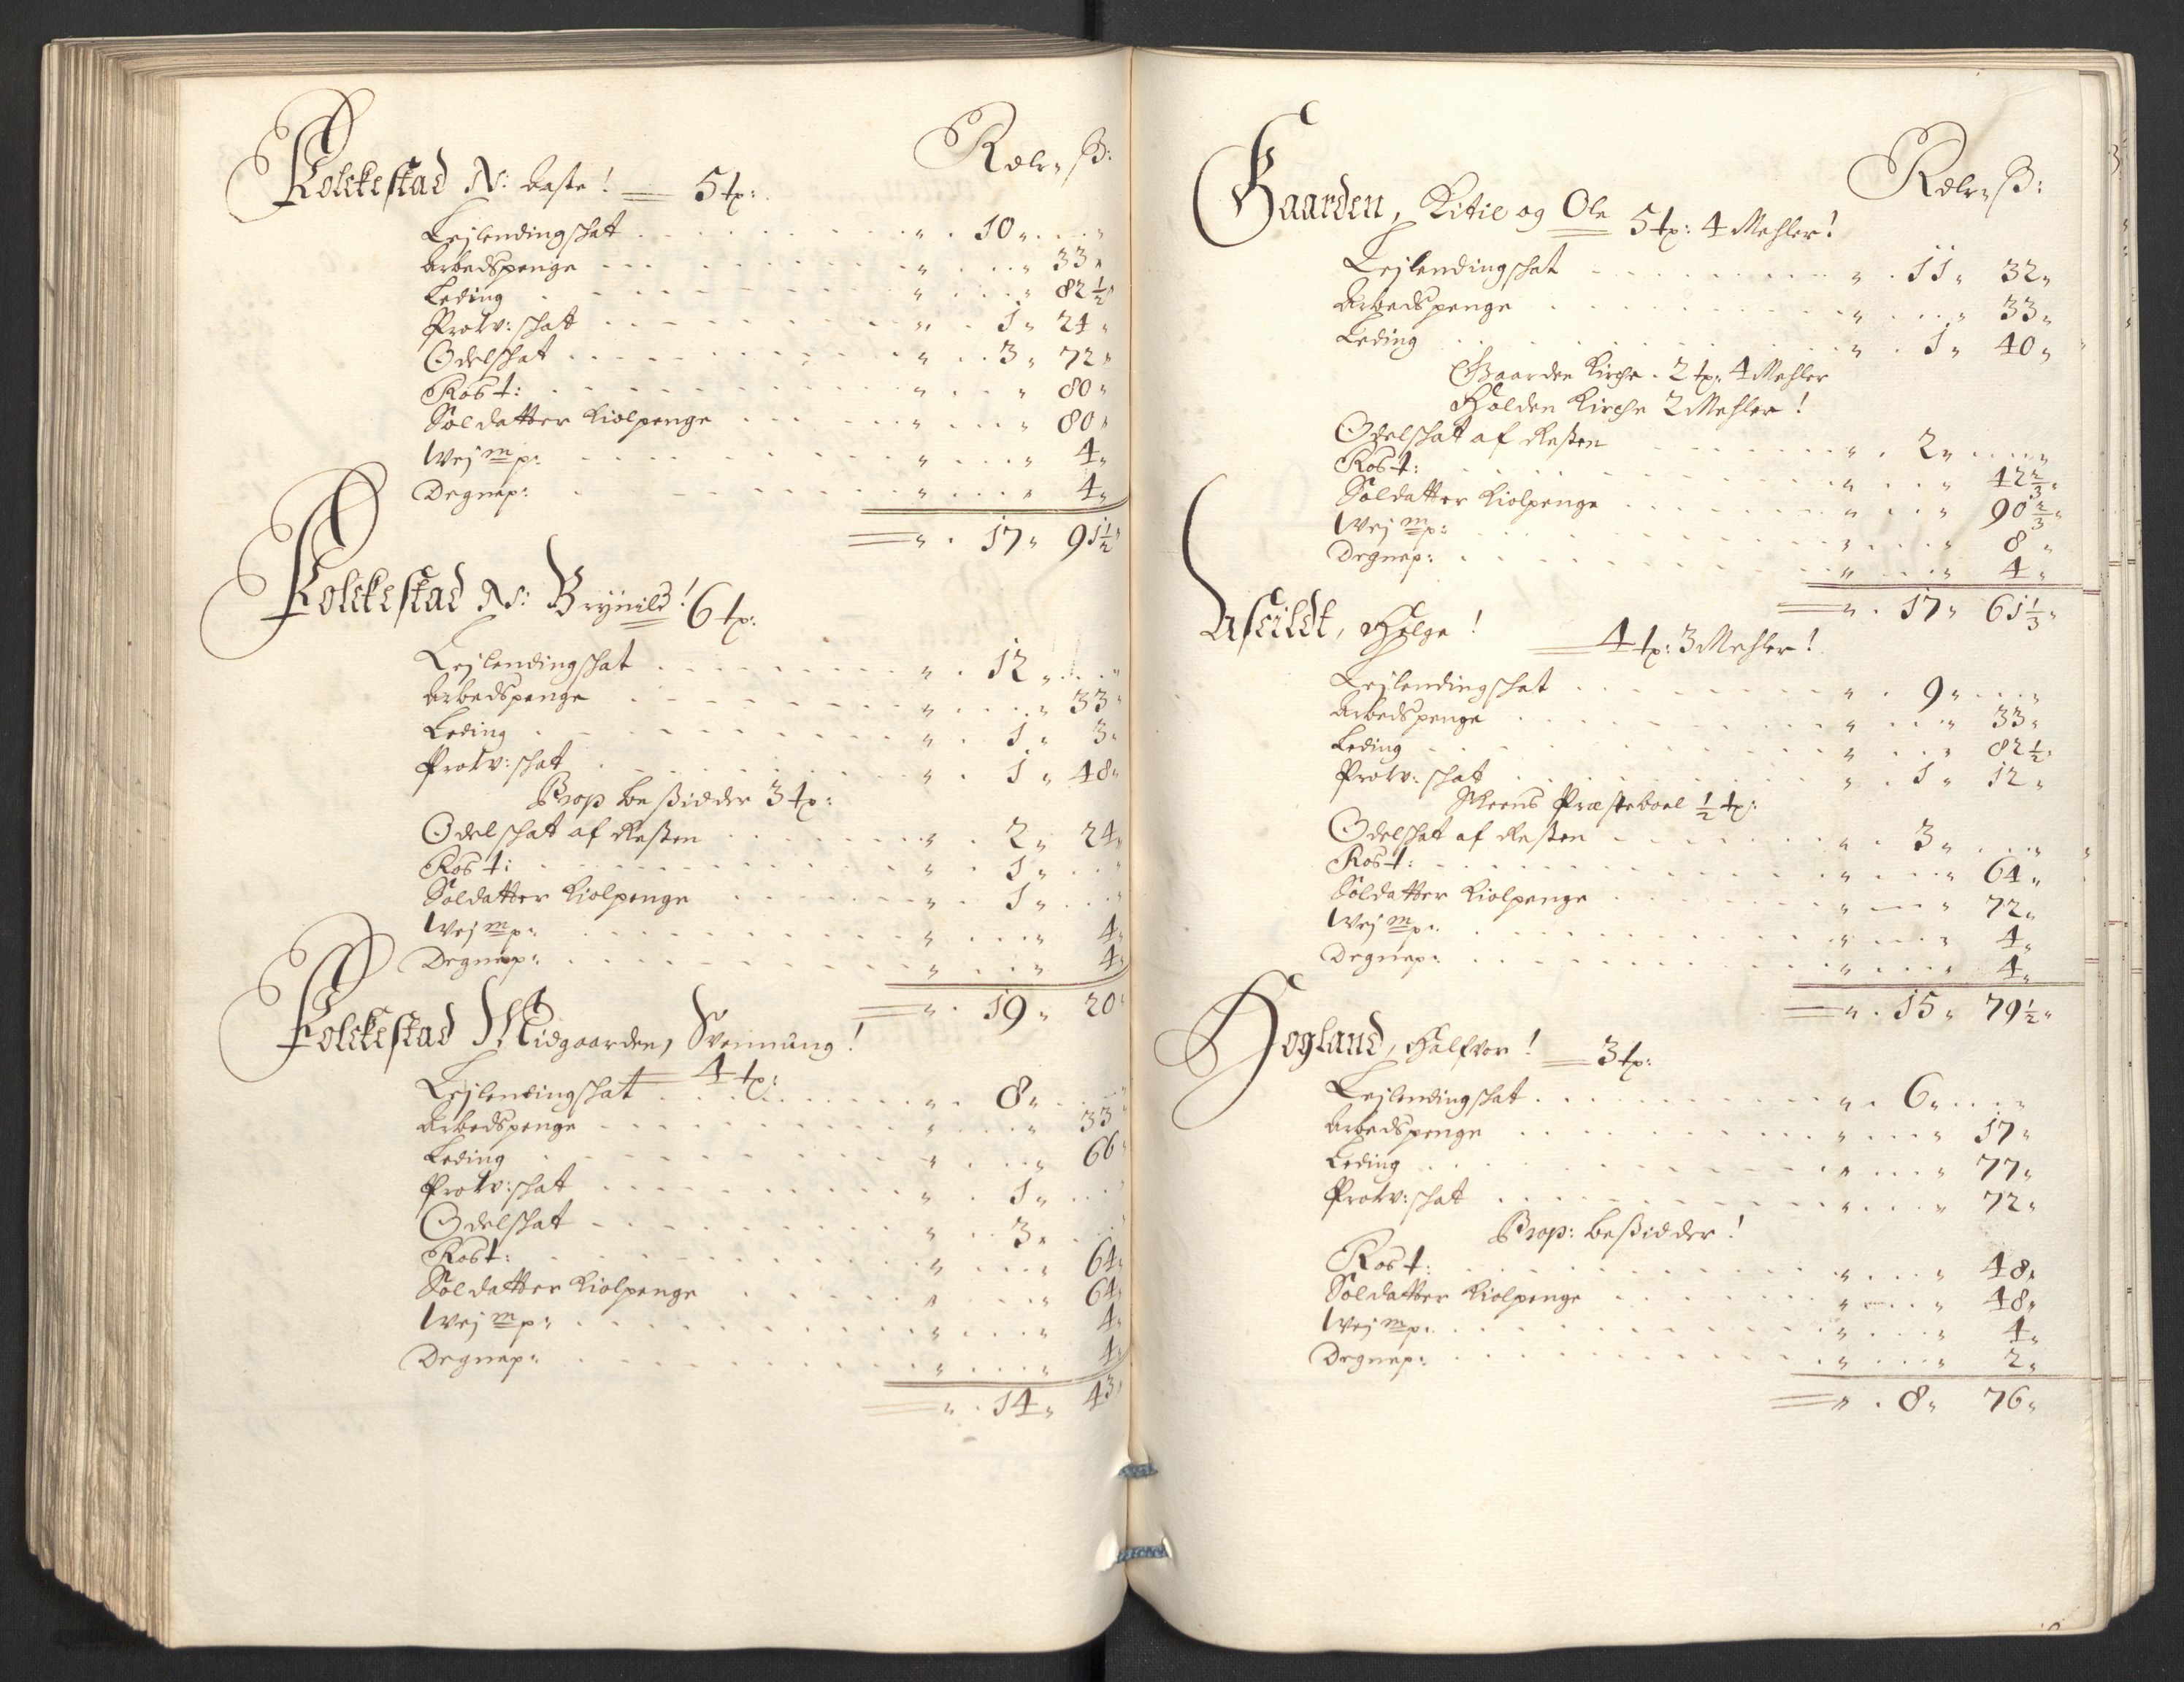 Rdlr ẞ:
Folckestad N: Aaste! 5 tp:
Leilendingschat „ 10 „ „
Arbedspenge „ „ 33 „
Leding „ „ 82 1/2 „
Prow: schat „ 1 „ 24 „
Odelschat „ 3 „ 72 „
Ros t: „ „ 80 „
Soldatter Kiolpenge „ „ 80 „
Wej m p: „ „ 4 „
Degnep: „ „ 4 „
„ 17 „ 91 1/2 „
Folckestad N: Brynild! 6 tp:
Leilendingschat „ 12 „ „
Arbedspenge „ „ 33 „
Leding „ 1 „ 3 „
Prow: schat „ 1 „ 48 „
Prop beßidder 3 tp:
Odelschat af Resten „ 2 „ 24 „
Ros t: „ 1 „ „
Soldatter Kiolpenge „ 1 „ „
Wej m p: „ „ 4 „
Degnep: „ „ 4 „
„ 19 „ 20 „
Folckestad Midgaarden, Svennung!
4 tp:
Leilendingschat „ 8 „ „
Arbedspenge „ „ 33 „
Leding „ „ 66 „
Prow: schat „ 1 „ „
Odelschat „ 3 „ „
Ros t: „ „ 64 „
Soldatter Kiolpenge „ „ 64 „
Wej m p: „ „ 4 „
Degnep: „ „ 4 „
„ 14 „ 43 „
Rdlr ẞ:
Gaarden, Kitil og Ole 5 tp: 4 Mehler!
Leilendingschat „ 11 „ 32 „
Arbedspenge „ „ 33 „
Leding „ 1 „ 40 „
Gaarden Kirche 2 tp: 4 Mehler
Holden Kirche 2 Mehler!
Odelschat af Resten „ 2 „ „
Ros t: „ „ 42 2/3 „
Soldatter Kiolpenge „ „ 90 2/3 „
Wej m p: „ „ 8 „
Degnep: „ „ 4 „
„ 17 „ 61 1/3 „
Aseildt, Helge! 4 tp: 3 Mehler!
Leilendingschat „ 9 „ „
Arbedspenge „ „ 33 „
Leding „ „ 82 1/2 „
Prow: schat „ 1 „ 12 „
Skeens Præsteboel 1/2 tp:
Odelschat af Resten „ 3 „ „
Ros t: „ „ 64 „
Soldatter Kiolpenge „ „ 72 „
Wej m p: „ „ 4 „
Degnep: „ „ 4 „
„ 15 „ 79 1/2 „
Hogland, Halfvor! 3 tp:
Leilendingschat „ 6 „ „
Arbedspenge „ „ 17 „
Leding „ „ 77 „
Prow: schat „ „ 72 „
Prop: beßidder!
Ros t: „ „ 48 „
Soldatter Kiolpenge „ „ 48 „
Wej m p: „ „ 4 „
Degnep: „ „ 2 „
„ 8 „ 76 „